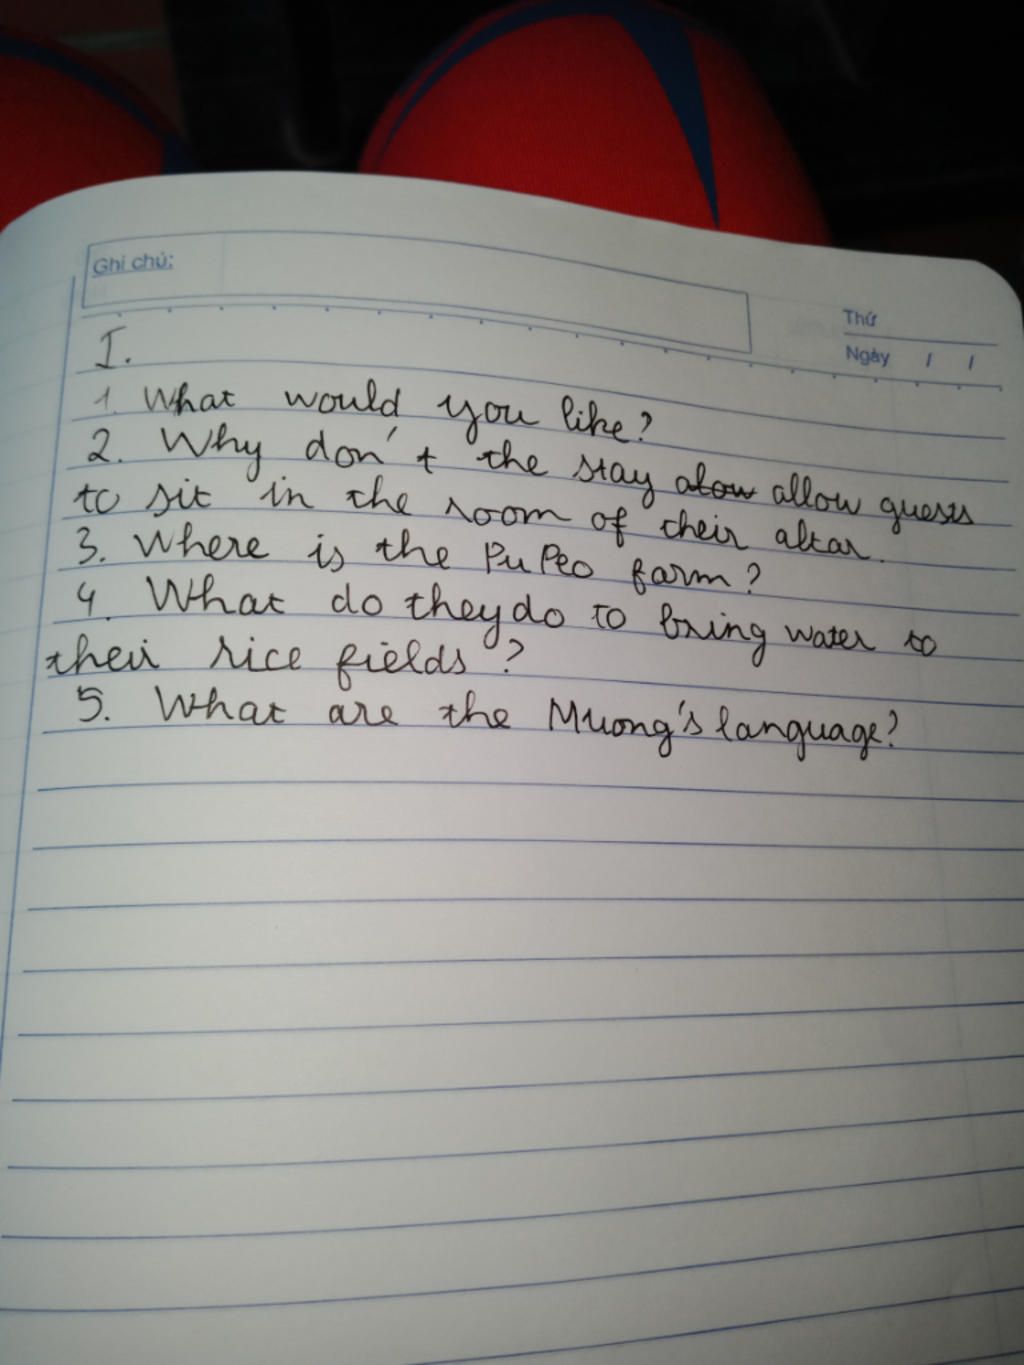 Ghi chú:
Thứ
Ngày / /
I.
1. What would you like?
2. Why don't the stay alow allow guests
to sit in the room of their altar.
3. Where is the Pu Peo farm?
4. What do they do to bring water to
their rice fields?
5. What are the Muong's language?